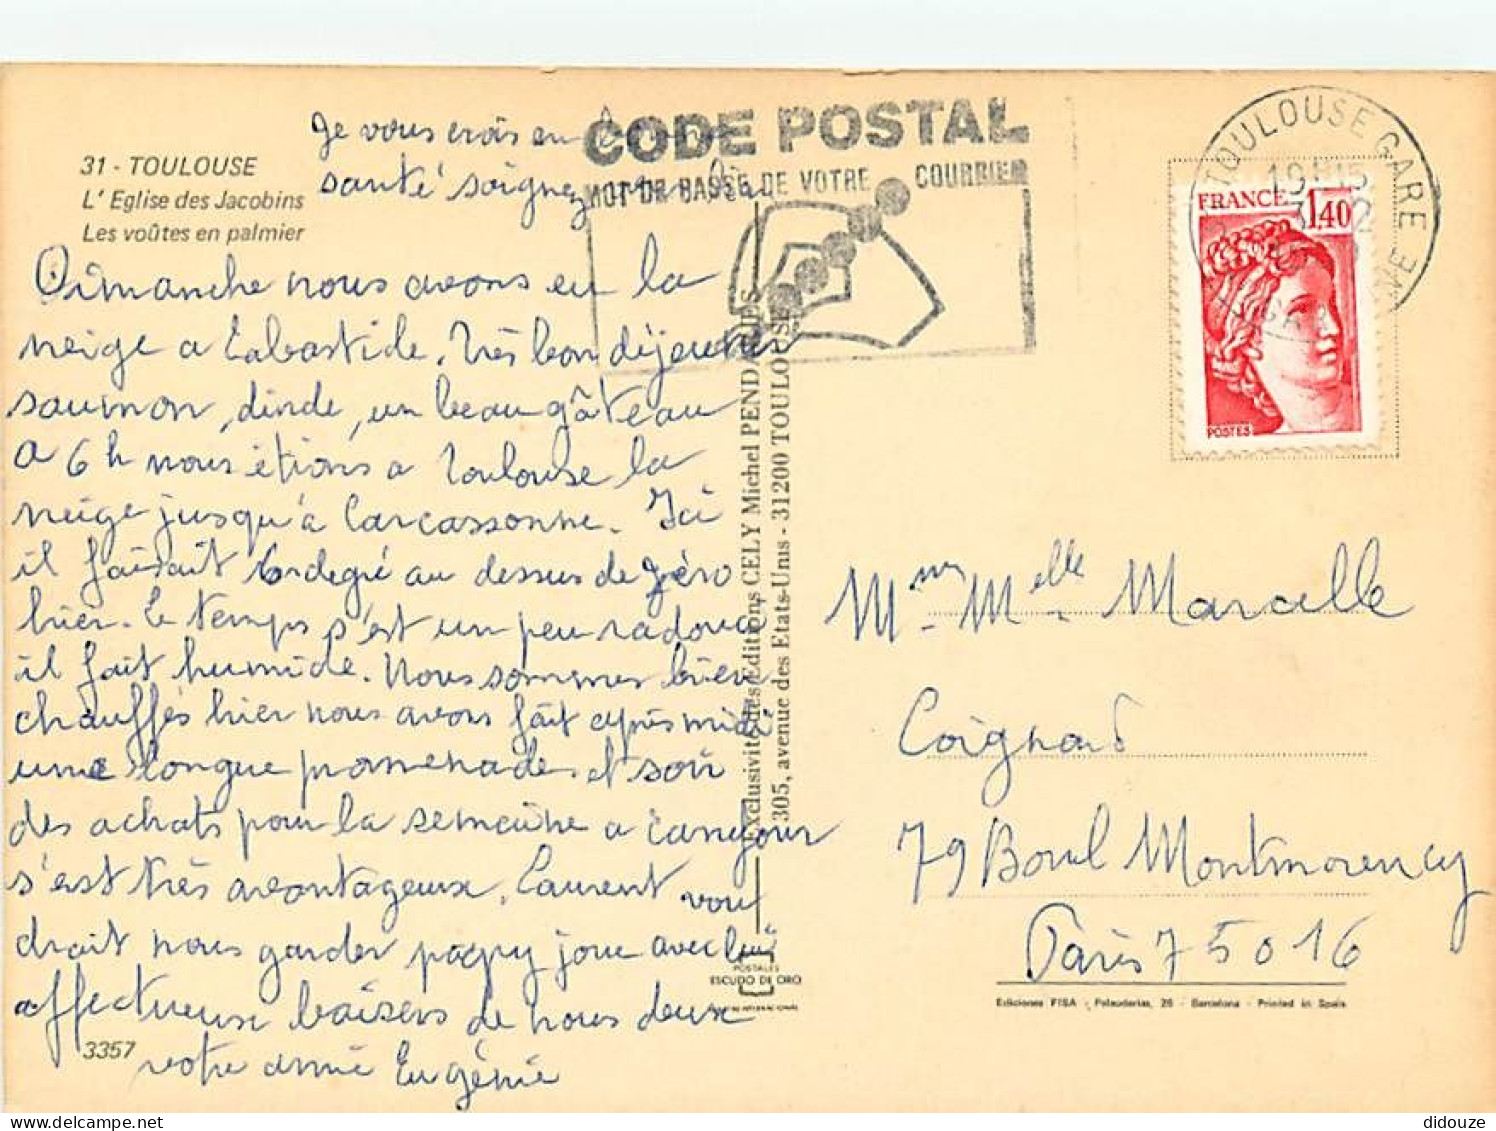 Je vous crois en bonne
santé soignez
31 - TOULOUSE
L'Eglise des Jacobins
Les voûtes en palmier
Dimanche nous avons eu la
neige a Labastide. Très bon déjeuner
saumon, dinde, un beau gâteau
a 6 h nous étions a Toulouse la
neige jusqu'à Carcassonne. Ici
il faisait degré au dessus de zéro
hier. Le temps s'est un peu radouci
il fait humide. Nous sommes bien
chauffés hier nous avons fait après midi
une longue promenade et soir
des achats pour la semaine a
s'est très avantageux. Laurent vou
drait nous garder papy joue avec lui
affectueux baisers de nous deux
votre amie Eugénie
3357
CODE POSTAL
MOT DE PASSE DE VOTRE COURRIER
TOULOUSE GARE
19H15
FRANCE 1,40
POSTES
Exclusivité des Editions CELY Michel PENDARIES
305, avenue des Etats-Unis - 31200 TOULOUSE
Mme Melle Marcelle
Coignard
79 Boul Montmorency
Paris 75016
POSTALES
ESCUDO DE ORO
Ediciones FISA - Palaudarias, 26 - Barcelona - Printed in Spain
didouze